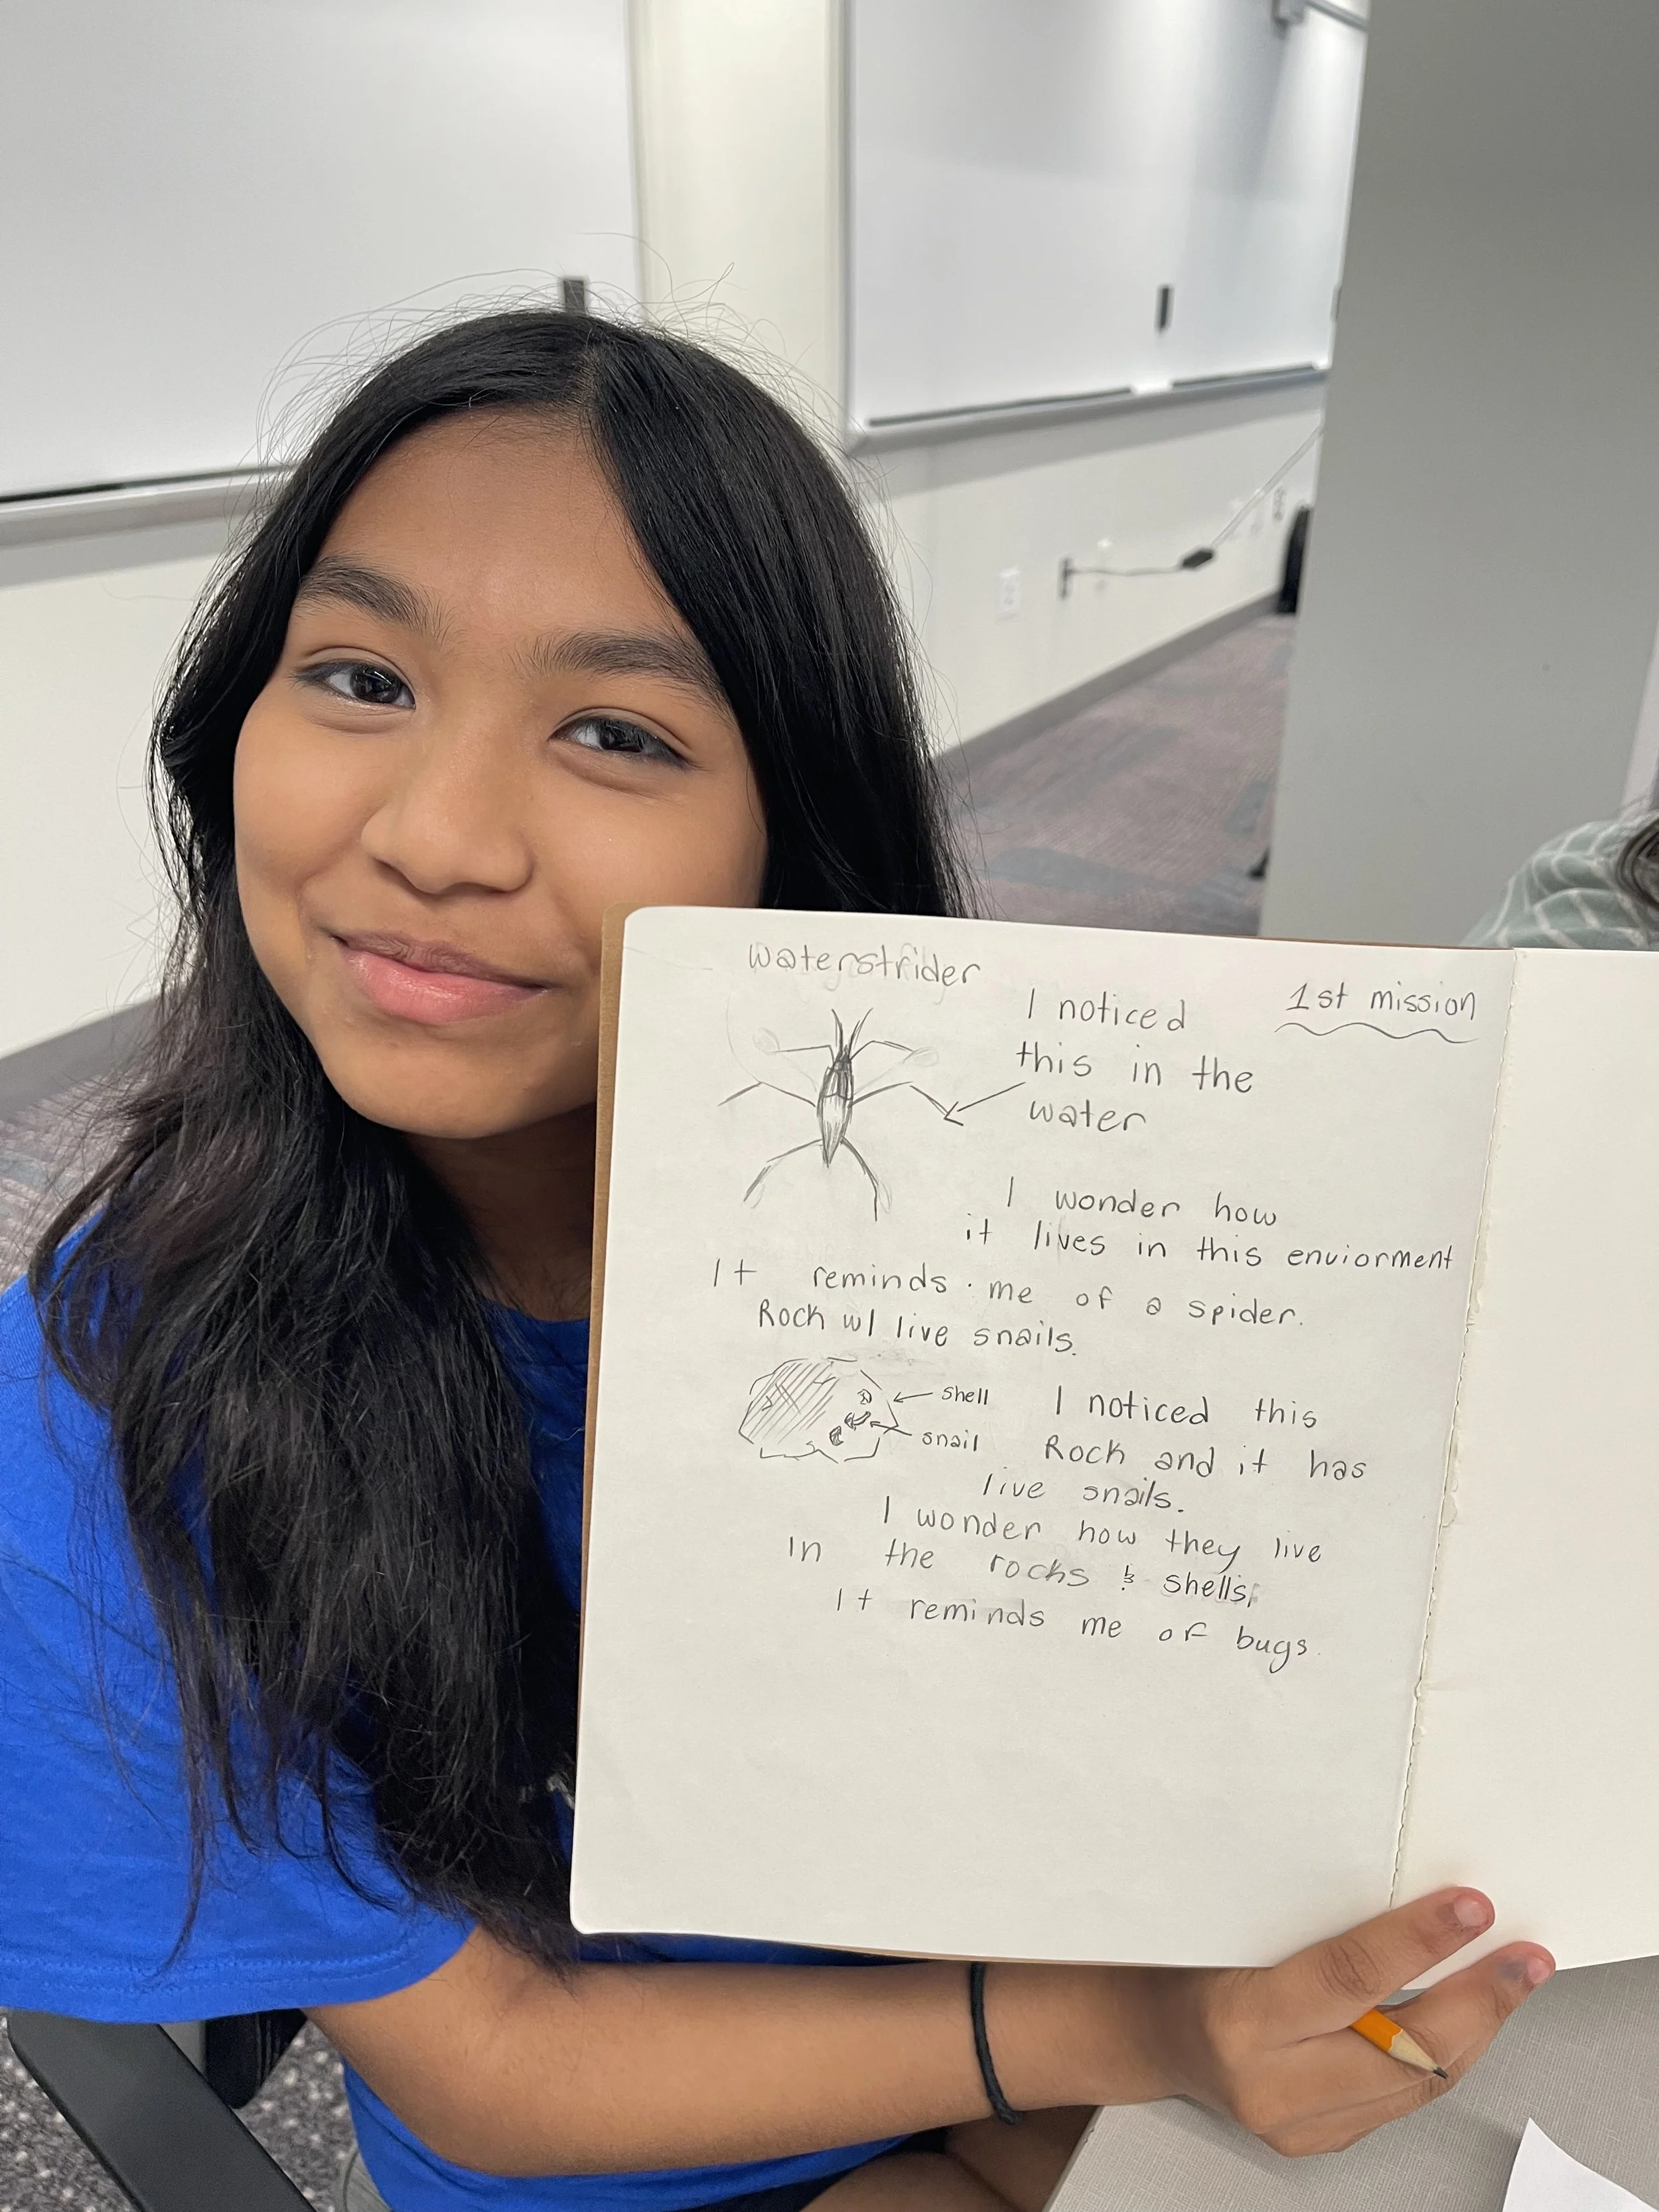 waterstrider
1st mission
I noticed
this in the
water
I wonder how
it lives in this enviorment
It reminds me of a spider.
Rock w/ live snails.
shell
snail
I noticed this
Rock and it has
live snails.
I wonder how they live
in the rocks & shells,
It reminds me of bugs.